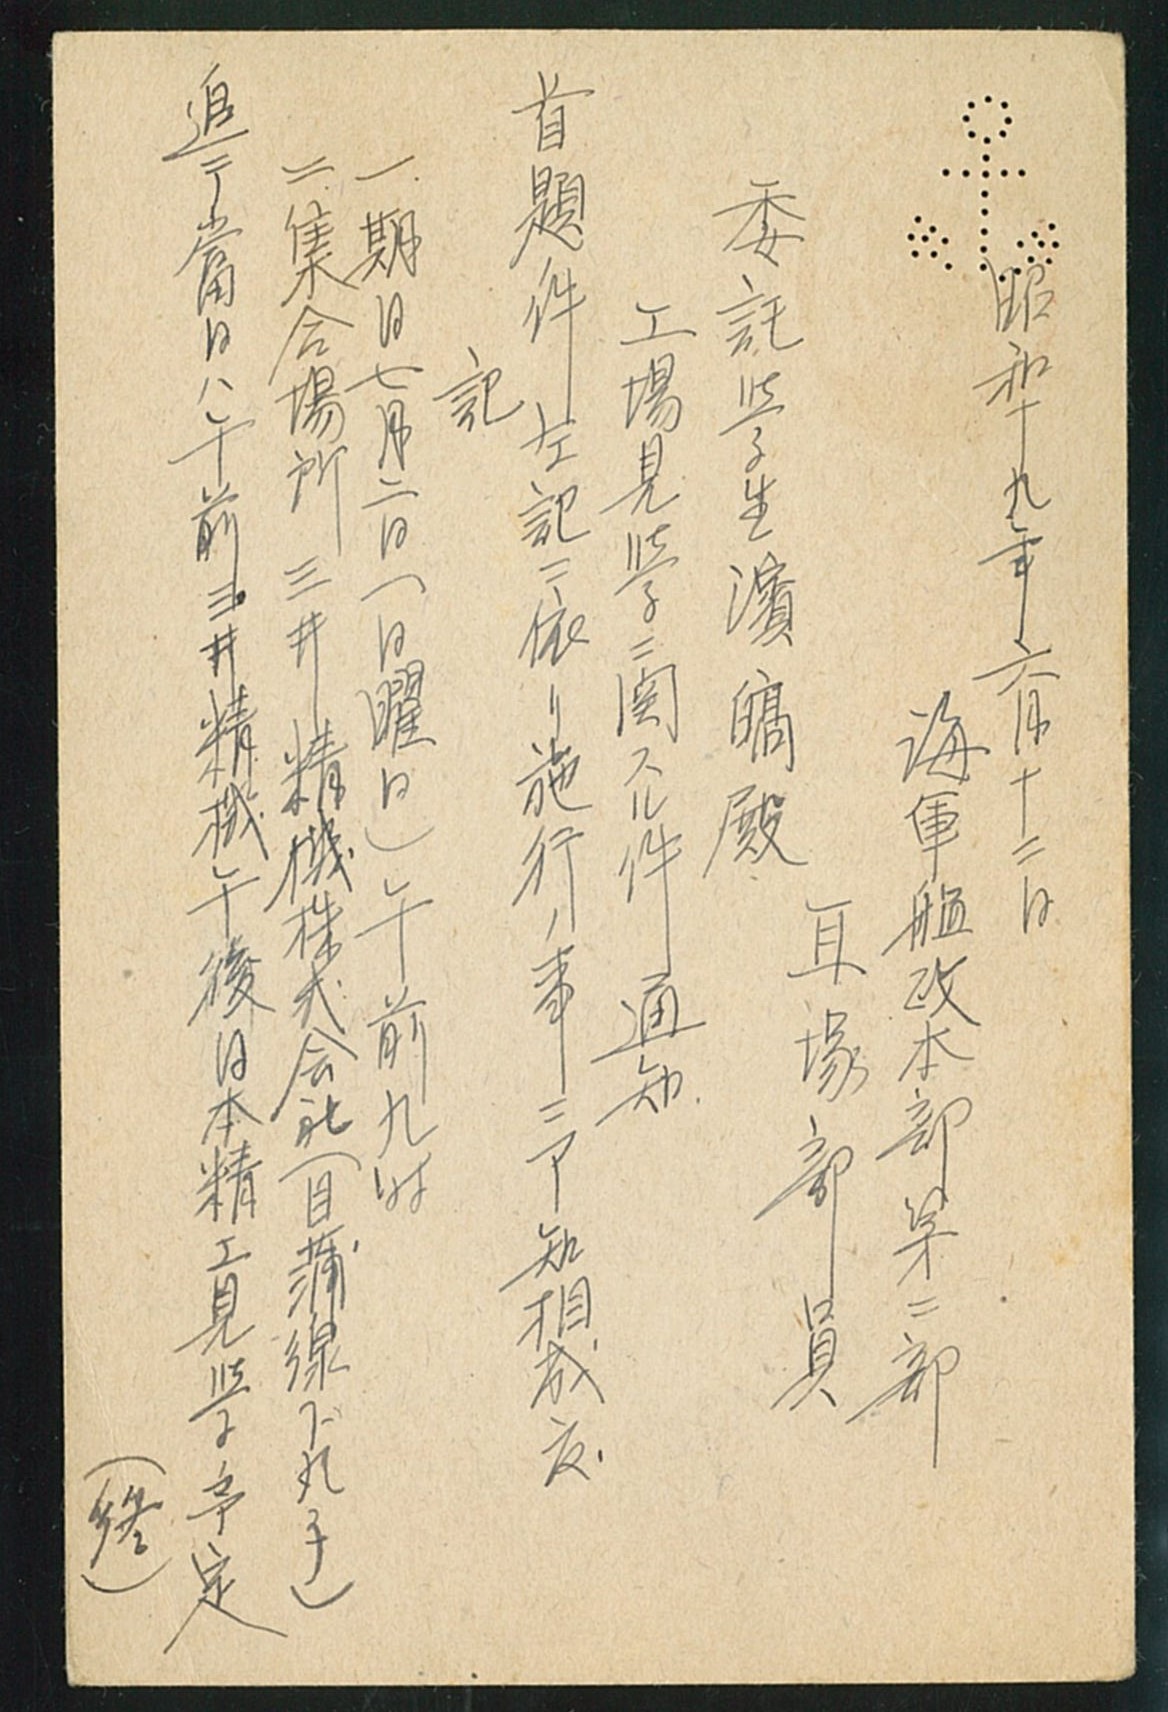 昭和十九年六月十二日
海軍艦政本部第二部
耳塚部員
委託学生濱 殿
工場見学ニ関スル件通知
首題件左記ニ依リ施行ノ事ニ 知相成度
記
一.期日七月二日(日曜日)午前九時
二.集合場所 三井精機株式会社(目蒲線下丸子)
追テ當日ハ午前三井精機午後日本精工見学予定
(終)